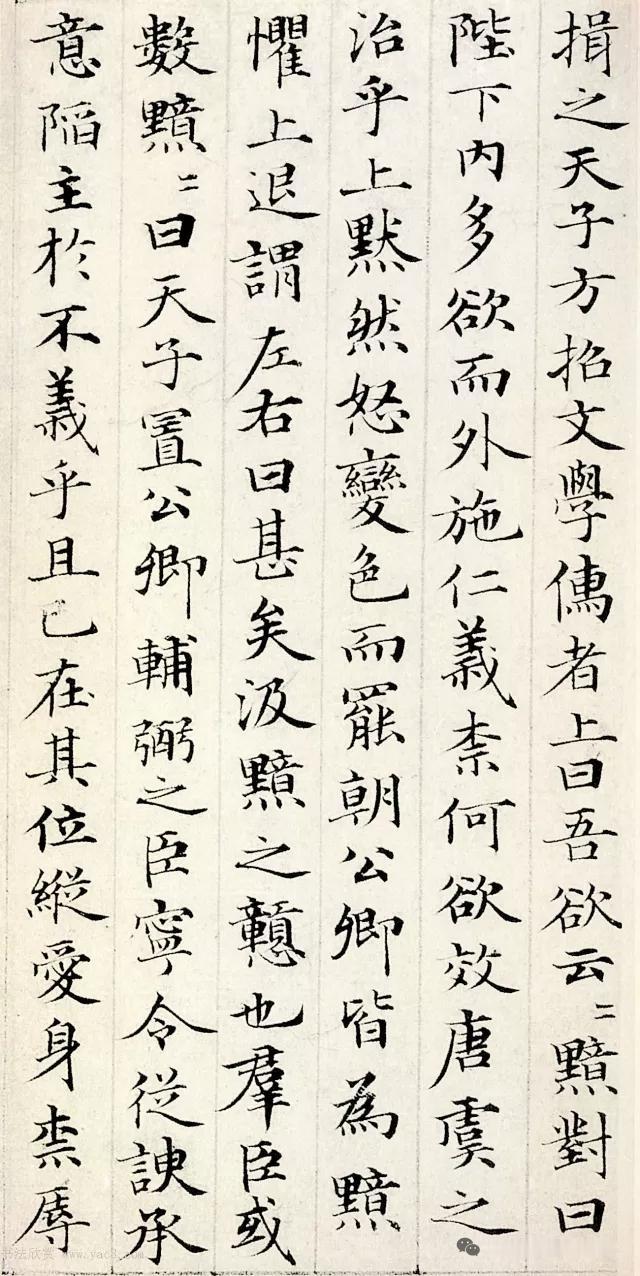 揖之天子方招文學儒者上曰吾欲云〻黯對曰
陛下内多欲而外施仁義柰何欲效唐虞之
治乎上默然怒變色而罷朝公卿皆為黯
懼上退謂左右曰甚矣汲黯之戇也羣臣或
數黯〻曰天子置公卿輔弼之臣寧令從諛承
意陷主於不義乎且已在其位縱愛身柰辱
书法欣赏 www.yac8.com